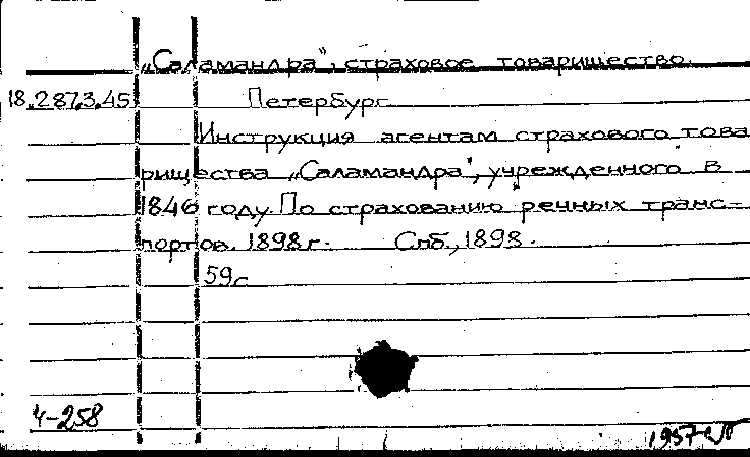 „Саламандра", страховое товарищество.
18.287.3.45 Петербург
Инструкция агентам страхового това
рищества „Саламандра", учрежденного в
1846 году. По страхованию речных транс-
портов. 1898 г. Спб., 1898.
59с
4-258
1957